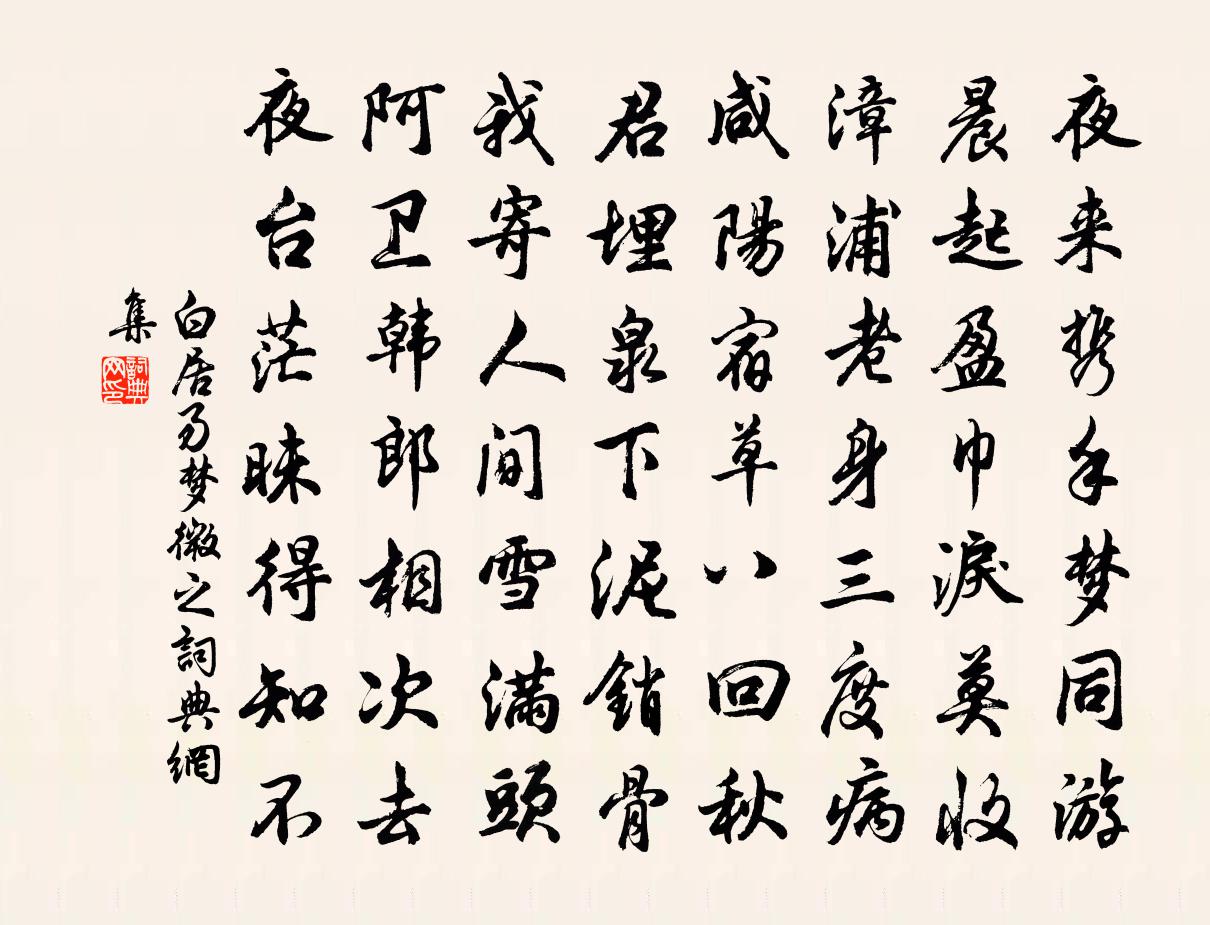 夜来携手梦同游
晨起盈巾淚莫收
漳浦老身三度病
咸陽宿草八回秋
君埋泉下泥銷骨
我寄人间雪满頭
阿卫韩郎相次去
夜台茫昧得知不
白居易梦微之詞典網
集
詞典网印